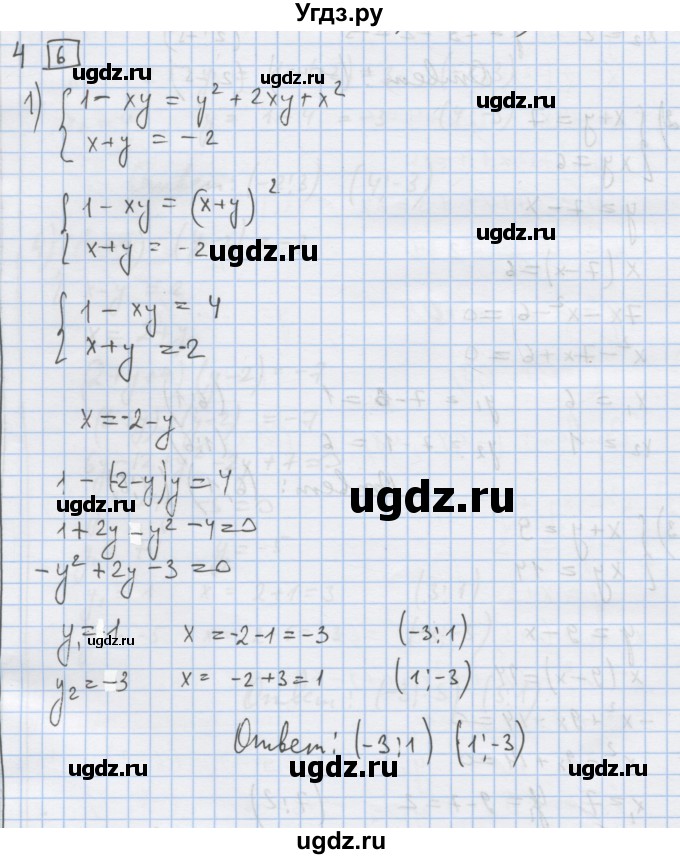 Угдз.ру
4 6
ugdz.ru ugdz.ru
1) { 1 - xy = y² + 2xy + x²
x + y = -2
ugdz.ru
{ 1 - xy = (x+y)²
x + y = -2
ugdz.ru
{ 1 - xy = 4
x + y = -2
x = -2 - y
1 - (-2-y)y = 4
ugdz.ru ugdz.ru
1 + 2y - y² - 4 = 0
-y² + 2y - 3 = 0
y₁ = 1 x = -2 - 1 = -3 (-3; 1)
ugdz.ru
y₂ = -3 x = -2 + 3 = 1 (1; -3)
Ответ: (-3; 1) (1; -3)
ugdz.ru ugdz.ru ugdz.ru
ugdz.ru